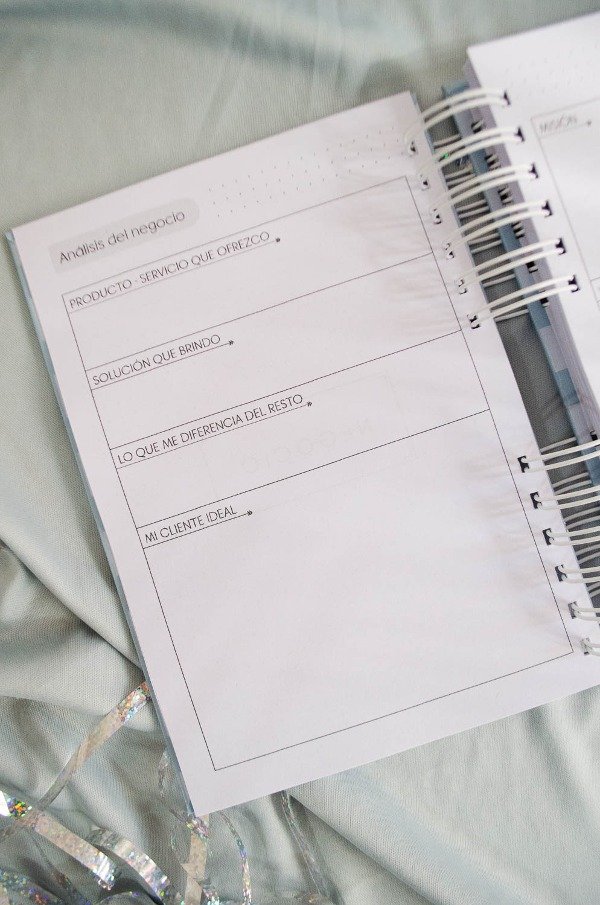 Análisis del negocio
PRODUCTO - SERVICIO QUE OFREZCO
SOLUCIÓN QUE BRINDO
LO QUE ME DIFERENCIA DEL RESTO
MI CLIENTE IDEAL
MISIÓN